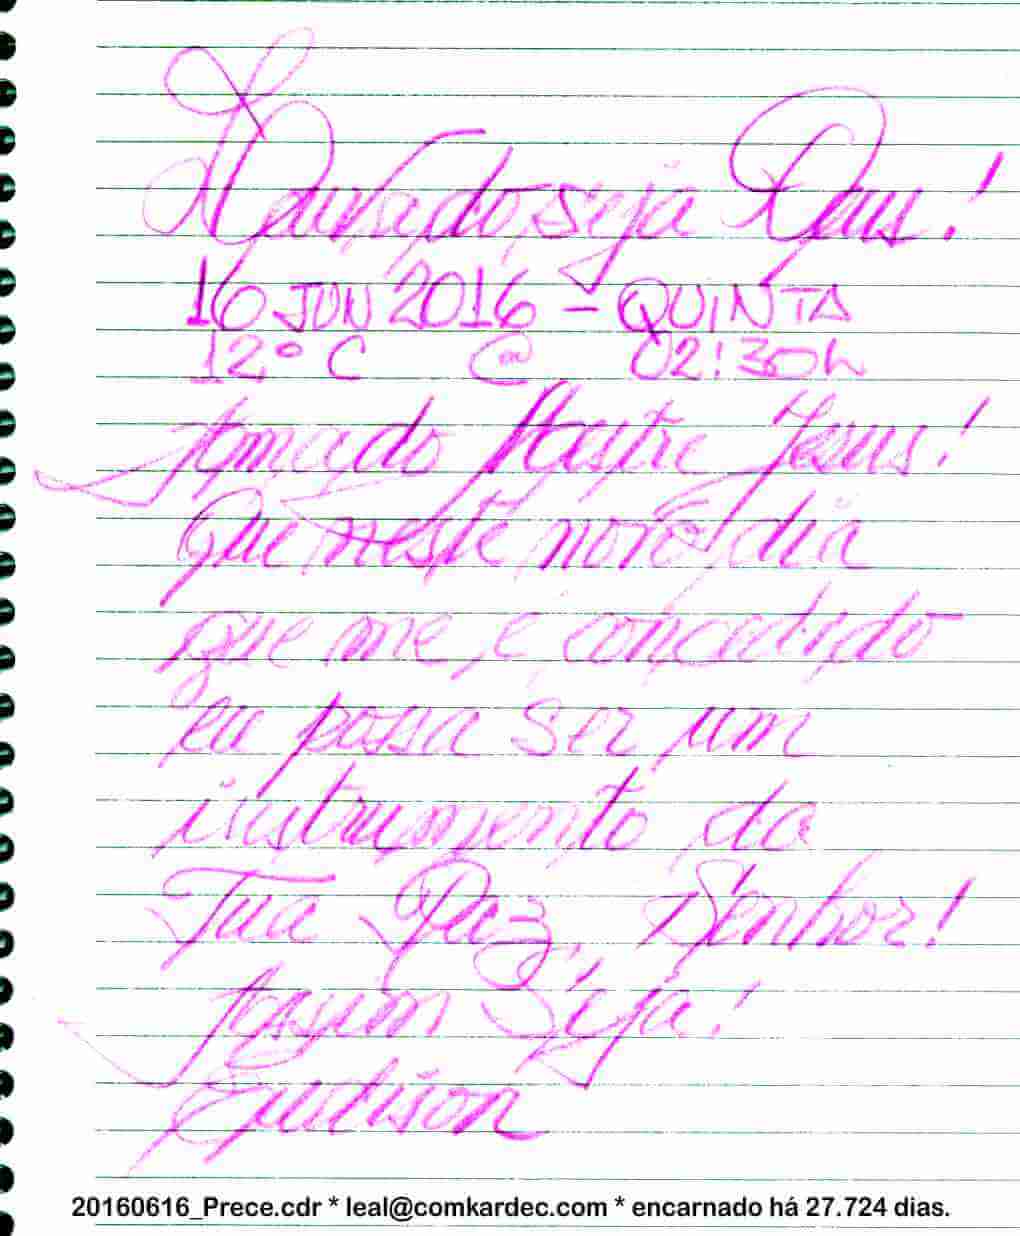 Louvado seja Deus!
16 JUN 2016 - QUINTA
12º C @ 02:30h
Amado Mestre Jesus!
Que neste novo dia
que me é concedido
eu possa ser um
instrumento da
Tua Paz, Senhor!
Assim Seja!
20160616_Prece.cdr * leal@comkardec.com * encarnado há 27.724 dias.